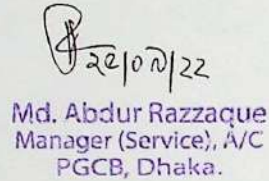 Md. Abdur Razzaque
Manager (Service), A/C
PGCB, Dhaka.